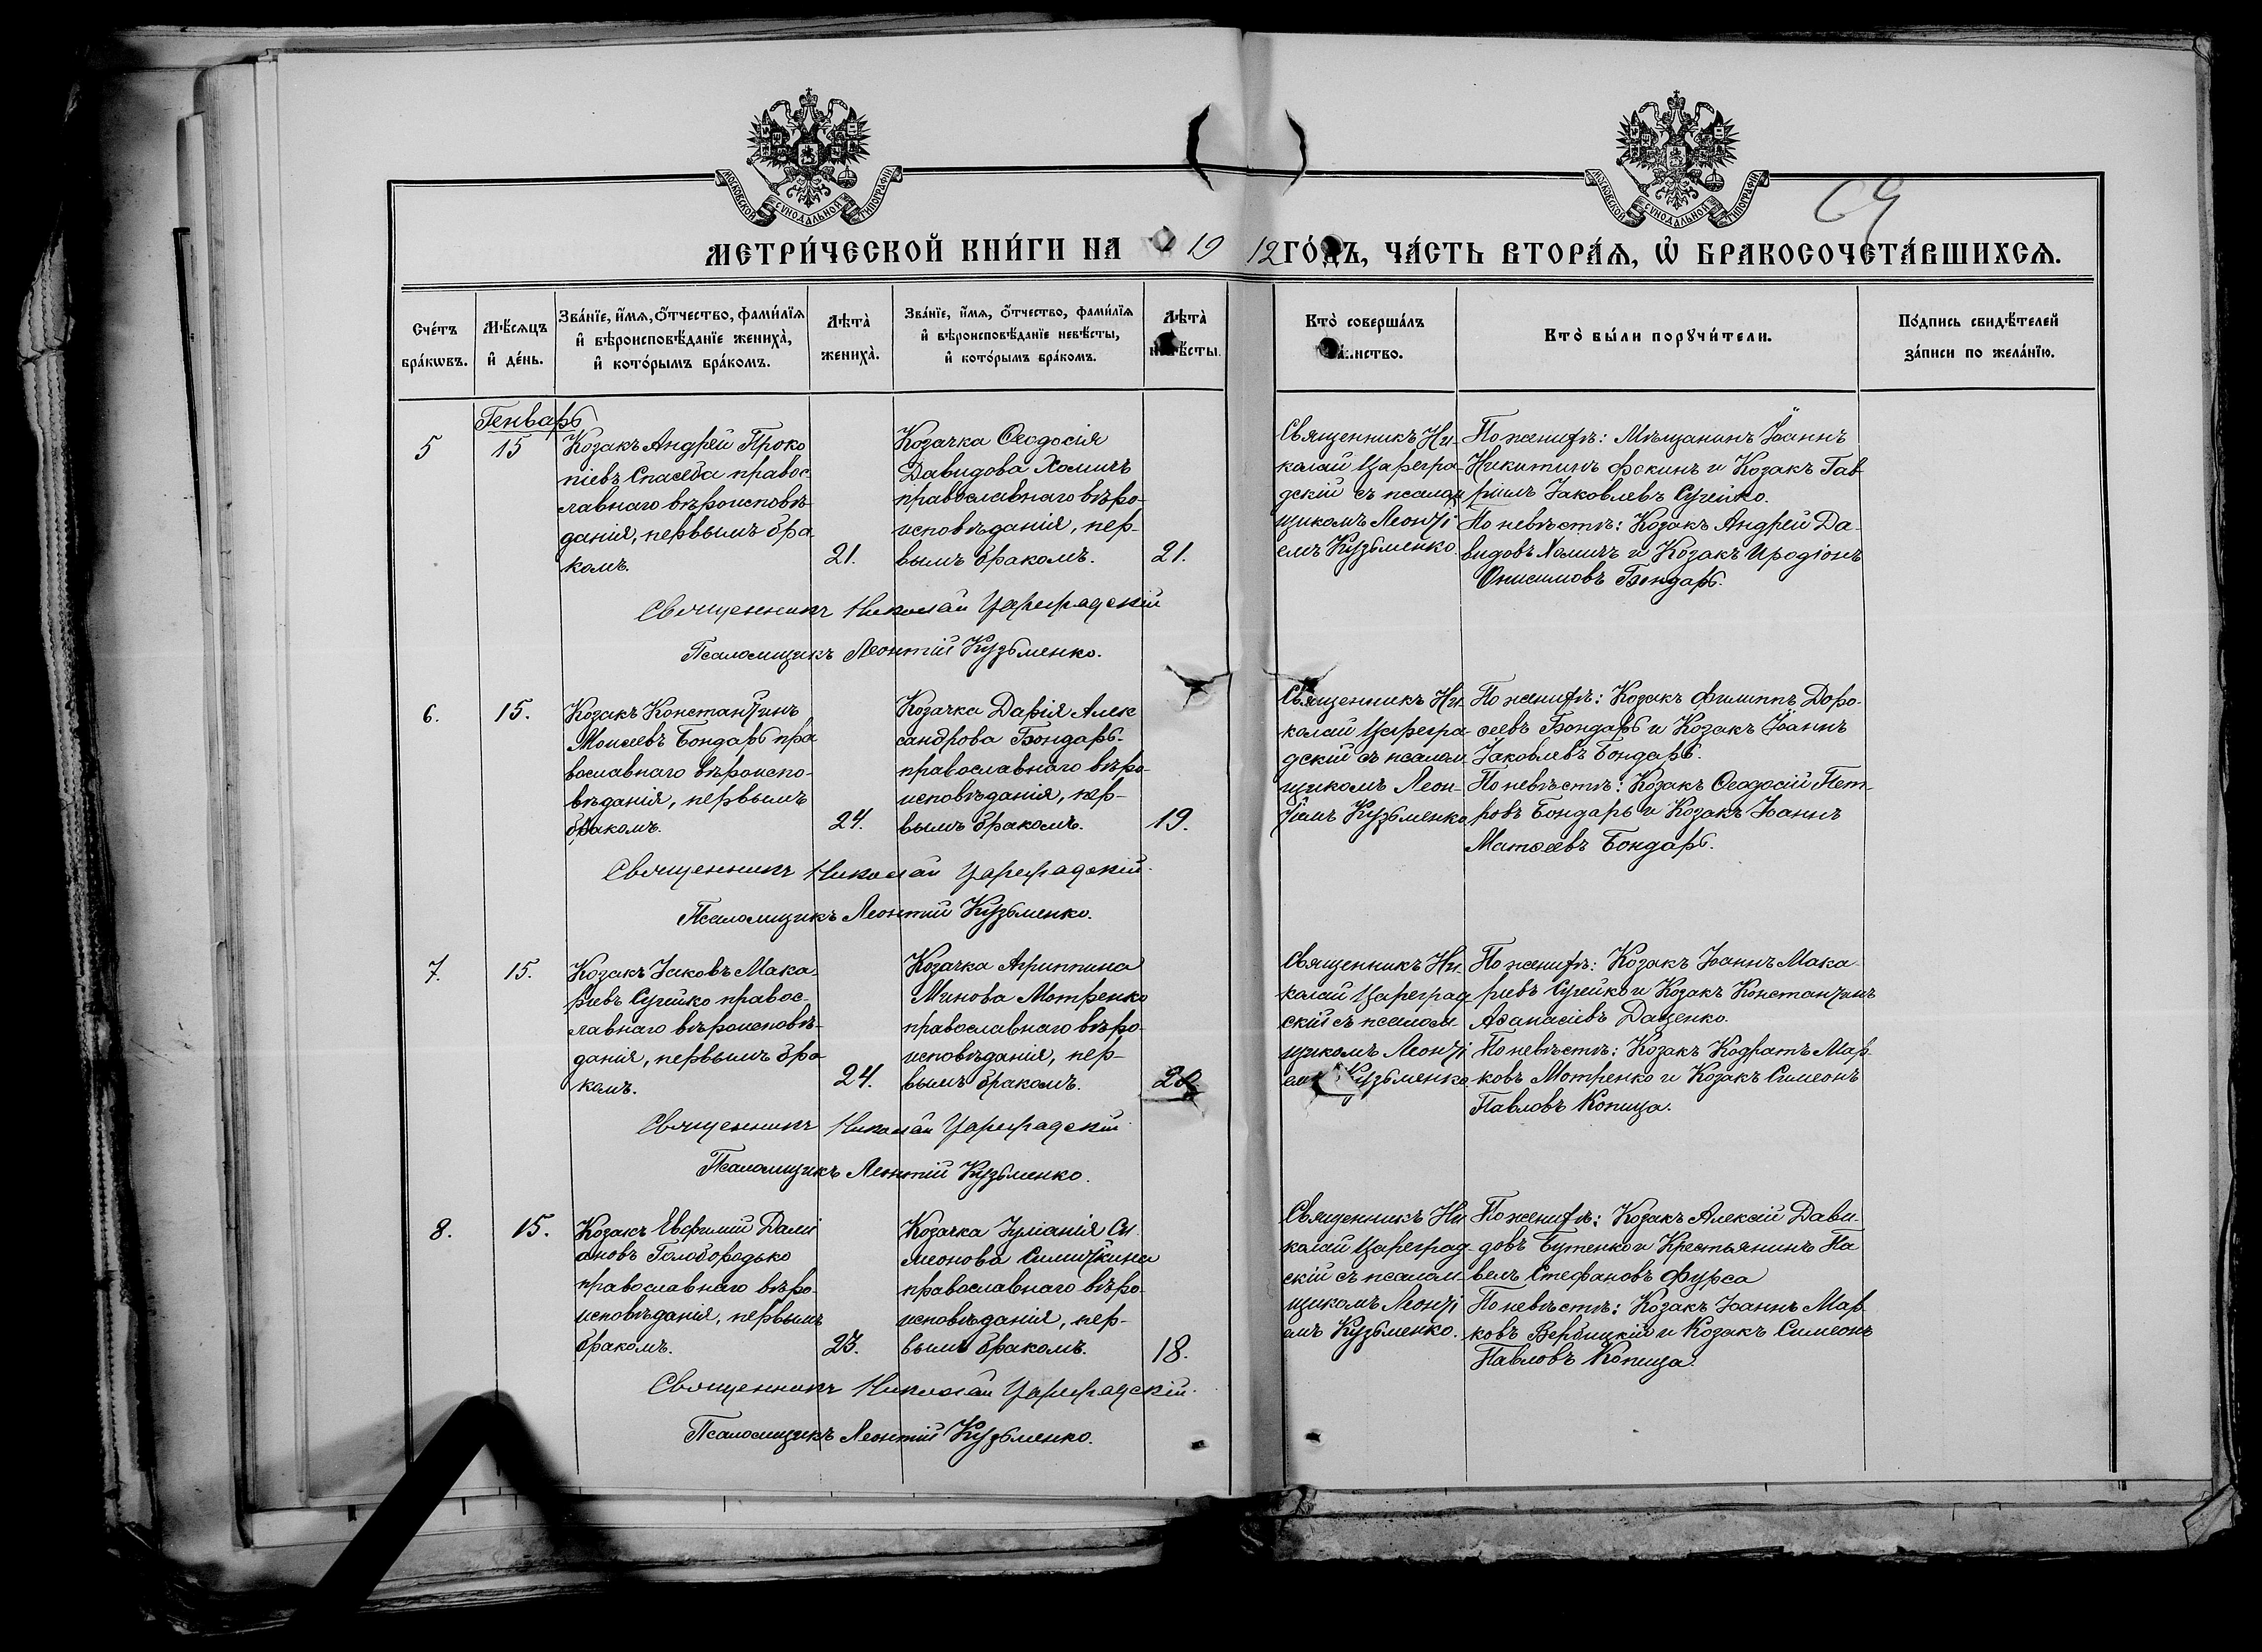 МОСКОВСКОЙ СѴНОДАЛЬНОЙ ТИПОГРАФІИ
МОСКОВСКОЙ СѴНОДАЛЬНОЙ ТИПОГРАФІИ
МЕТРИ́ЧЕСКОЙ КНИ́ГИ НА 1912 ГО́ДЪ, ЧА́СТЬ ВТОРА́Я, Ѽ БРАКОСОЧЕТА́ВШИХСЯ.
Сче́тъ
бра́кѡвъ.
Мѣ́сяцъ
и҆ де́нь.
Зва́нїе, и҆́мя, о҆́тчество, фами́лїя
и҆ вѣроисповѣ́данїе жениха̀,
и҆ кото́рымъ бра́комъ.
Лѣта̀
жениха̀.
Зва́нїе, и҆́мя, о҆́тчество, фами́лїя
и҆ вѣроисповѣ́данїе невѣ́сты,
и҆ кото́рымъ бра́комъ.
Лѣта̀
невѣ́сты.
Кто̀ соверша́лъ
та́инство.
Кто̀ бы́ли порꙋчи́тели.
По́дпись свидѣ́телей
за́писи по жела́нїю.
Генварь
5
15
Козакъ Андрей Проко
піевъ Спасеба правос-
лавнаго вѣроисповѣ-
данія, первымъ бра
комъ.
21.
Козачка Ѳеодосія
Давидова Хомичъ
православнаго вѣро-
исповѣданія, пер-
вымъ бракомъ.
21.
Священникъ Ни-
колай Царегра-
дскій съ псалом
щикомъ Леонті
емъ Кузьменко.
По женихѣ: Мѣщанинъ Іоаннъ
Никитичъ Фокинъ и Козакъ Гав
ріилъ Іаковлевъ Сугейко.
По невѣстѣ: Козакъ Андрей Да-
видовъ Хомичъ и Козакъ Иродіонъ
Онисимовъ Бондарь.
Священникъ Николай Цареградскій
Псаломщикъ Леонтій Кузьменко.
6.
15.
Козакъ Константинъ
Моисеевъ Бондарь пра
вославнаго вѣроиспо-
вѣданія, первымъ
бракомъ.
24.
Козачка Дарія Алек
сандрова Бондарь
православнаго вѣро-
исповѣданія, пер-
вымъ бракомъ.
19.
Священникъ Ни-
колай Царегра-
дскій съ псалом
щикомъ Леон-
тіемъ Кузьменко
По женихѣ: Козакъ Филиппъ Доро-
ѳеевъ Бондарь и Козакъ Іоаннъ
Іаковлевъ Бондарь.
По невѣстѣ: Козакъ Ѳеодосій Пет-
ровъ Бондарь и Козакъ Іоаннъ
Матѳеевъ Бондарь.
Священникъ Николай Цареградскій.
Псаломщикъ Леонтій Кузьменко.
7.
15.
Козакъ Іаковъ Мака-
ріевъ Сугейко правос-
лавнаго вѣроисповѣ-
данія, первымъ бра
комъ.
24.
Козачка Агриппина
Минова Мотренко
православнаго вѣро-
исповѣданія, пер-
вымъ бракомъ.
Священникъ Ни-
колай Цареград
скій съ псалом
щикомъ Леонті
емъ Кузьменко
По женихѣ: Козакъ Іоаннъ Мака-
ріевъ Сугейко и Козакъ Константинъ
Аѳанасіевъ Даценко.
По невѣстѣ: Козакъ Кодратъ Мар-
ковъ Мотренко и Козакъ Симеонъ
Павловъ Копица.
Священникъ Николай Цареградскій
Псаломщикъ Леонтій Кузьменко.
8.
15.
Козакъ Евфимій Дамі
ановъ Голобородько
православнаго вѣро-
исповѣданія, первымъ
бракомъ.
23.
Козачка Іуліанія Си
меонова Симиткина
православнаго вѣро-
исповѣданія, пер-
вымъ бракомъ.
18.
Священникъ Ни
колай Цареград-
скій съ псалом-
щикомъ Леонті
емъ Кузьменко.
По женихѣ: Козакъ Алексій Дави-
довъ Бутенко и Крестьянинъ Па
велъ Стефановъ Фурса
По невѣстѣ: Козакъ Іоаннъ Мар-
ковъ Вербицкій и Козакъ Симеонъ
Павловъ Копица.
Священникъ Николай Цареградскій.
Псаломщикъ Леонтій Кузьменко.